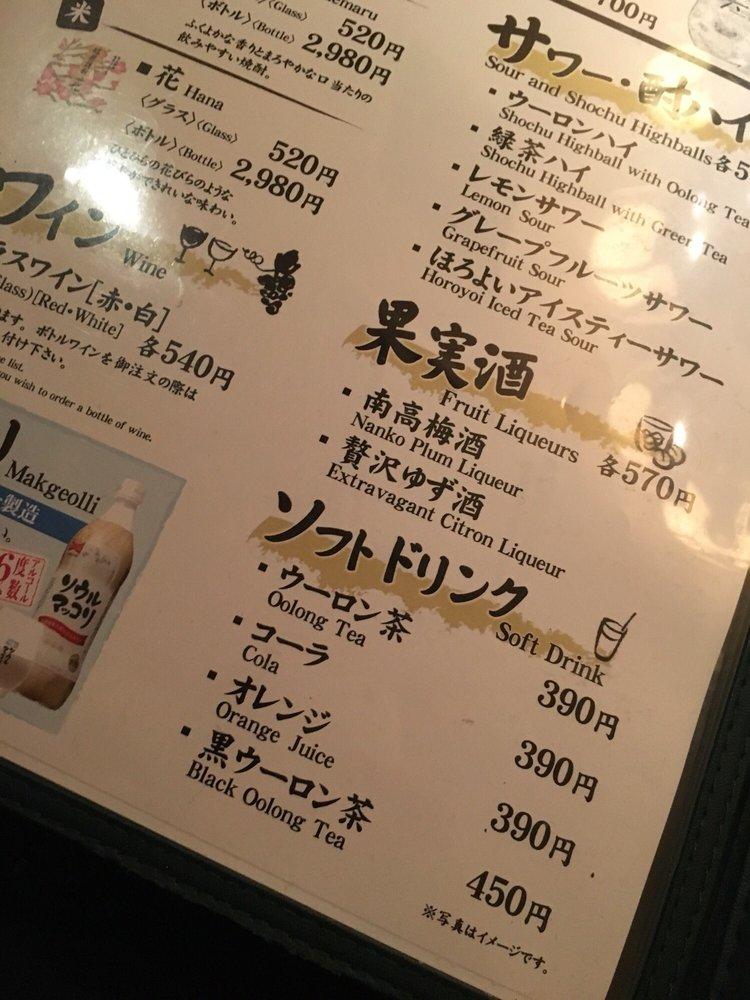 米
520円
〈ボトル〉〈Bottle〉 2,980円
ふくよかな香りとまろやかな口当たりの
飲みやすい焼酎。
▪花 Hana
〈グラス〉〈Glass〉 520円
〈ボトル〉〈Bottle〉 2,980円
ひとひらの花びらのような
きれいな味わい。
ワイン Wine
ラスワイン[赤・白]
Glass)[Red・White] 各540円
ます。ボトルワインを御注文の際は
付け下さい。
list.
you wish to order a bottle of wine.
Makgeolli
製造
アルコール
度数
6
ソウル
マッコリ
700円
サワー・酎ハイ
Sour and Shochu Highballs 各5
▪ウーロンハイ
Shochu Highball with Oolong Tea
▪緑茶ハイ
Shochu Highball with Green Tea
▪レモンサワー
Lemon Sour
▪グレープフルーツサワー
Grapefruit Sour
▪ほろよいアイスティーサワー
Horoyoi Iced Tea Sour
果実酒
Fruit Liqueurs 各570円
▪南高梅酒
Nanko Plum Liqueur
▪贅沢ゆず酒
Extravagant Citron Liqueur
ソフトドリンク
Soft Drink
▪ウーロン茶
Oolong Tea 390円
▪コーラ
Cola 390円
▪オレンジ
Orange Juice 390円
▪黒ウーロン茶
Black Oolong Tea 450円
※写真はイメージです。